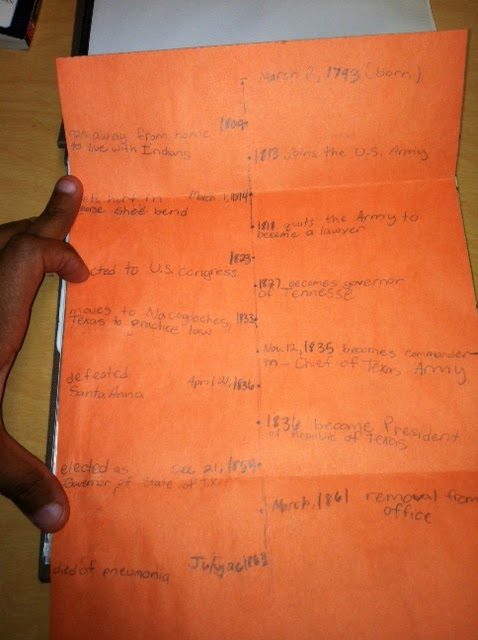 March 2, 1793 (born)
1809
ran away from home
to live with Indians
1813 joins the U.S. Army
March 1, 1814
hurt in
horse shoe bend
1818 quits the Army to
become a lawyer
1823
cted to U.S. congress
1827 becomes governor
of Tennesse
moves to Nacogdoches, 1833
Texas to practice law
Nov. 12, 1835 becomes commander-
in-Chief of Texas, Army
defeated April 21, 1836
Santa Anna
1836 become President
of Republic of Texas
elected as Dec 21, 1859
Governor of State of
March, 1861 removal from
office
July 26 1863
died of pneumonia